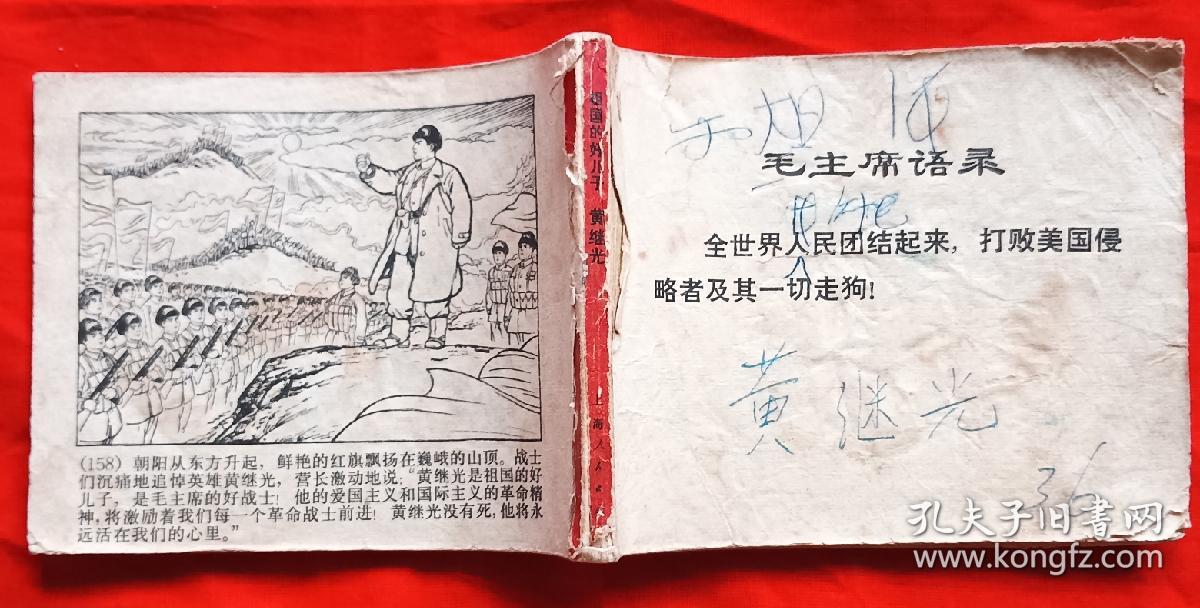 (158) 朝阳从东方升起，鲜艳的红旗飘扬在巍峨的山顶。战士
们沉痛地追悼英雄黄继光，营长激动地说：“黄继光是祖国的好
儿子，是毛主席的好战士！他的爱国主义和国际主义的革命精
神，将激励着我们每一个革命战士前进！黄继光没有死，他将永
远活在我们的心里。”
祖国的好儿子 黄继光
上海人民
毛主席语录
全世界人民团结起来，打败美国侵
略者及其一切走狗！
黄继光
36
孔夫子旧书网
www.kongfz.com